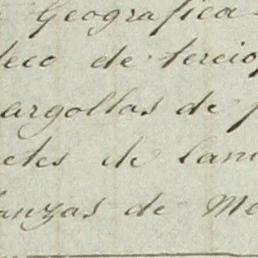 Geografica
deco de tercio
argollas de
etes de lan
anzas de Me